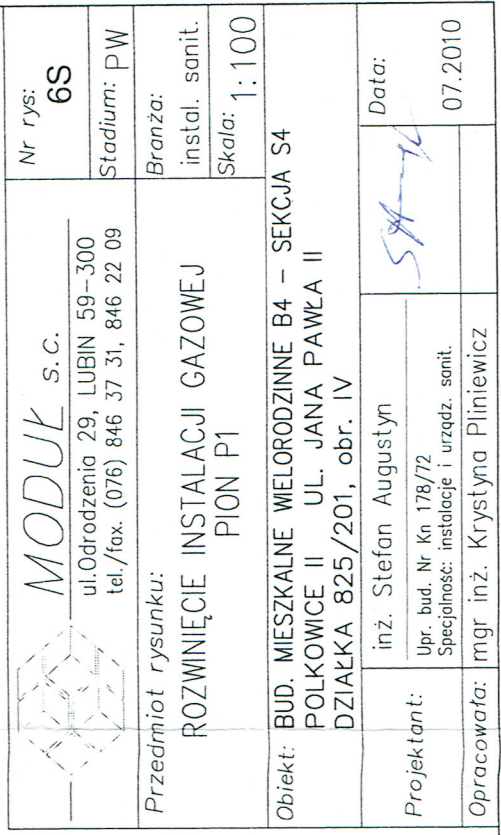 MODUŁ s.c.
ul.Odrodzenia 29, LUBIN 59-300
tel./fax. (076) 846 37 31, 846 22 09
Nr rys:
6S
Stadium: PW
Przedmiot rysunku:
ROZWINIĘCIE INSTALACJI GAZOWEJ
PION P1
Branża:
instal. sanit.
Skala: 1:100
Obiekt: BUD. MIESZKALNE WIELORODZINNE B4 – SEKCJA S4
POLKOWICE II UL. JANA PAWŁA II
DZIAŁKA 825/201, obr. IV
Projektant:
inż. Stefan Augustyn
Upr. bud. Nr Kn 178/72
Specjalność: instalacje i urządz. sanit.
Data:
Opracowała: mgr inż. Krystyna Pliniewicz
07.2010